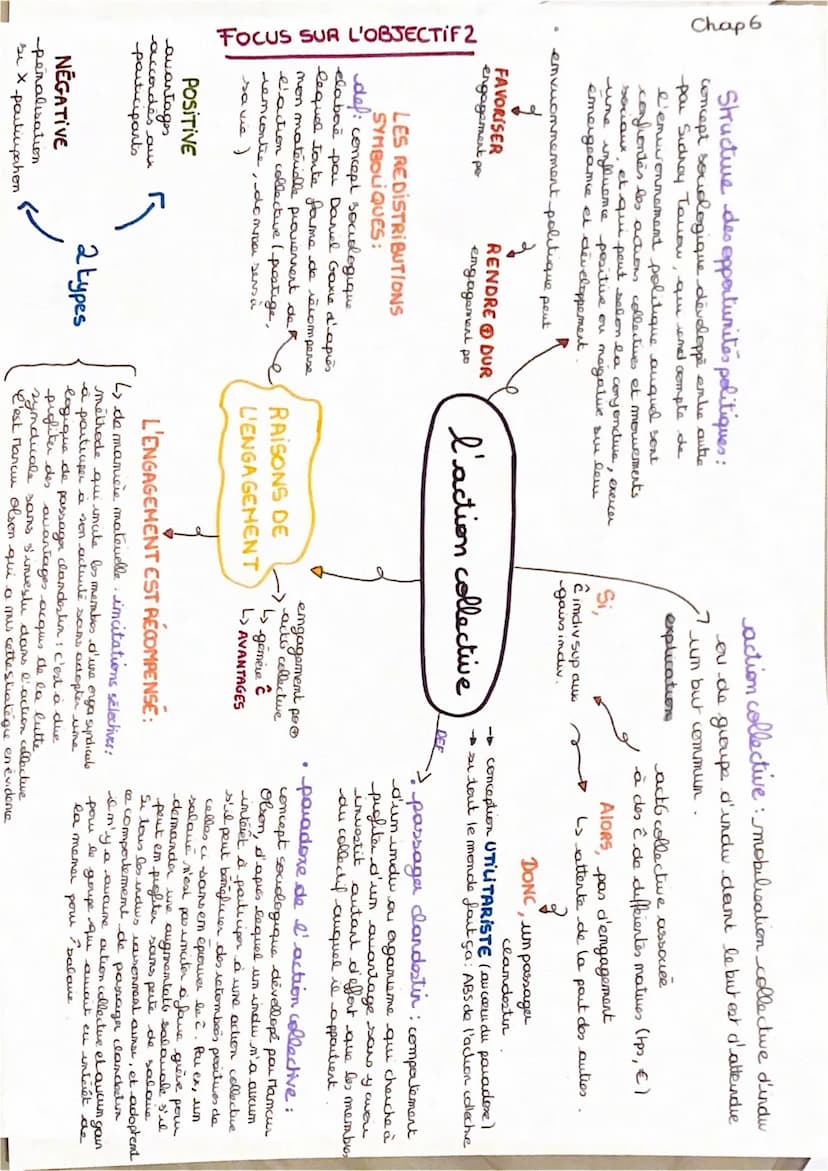 Chap 6
FOCUS SUR L'OBJECTIF 2
Structure des opportunités politiques :
concept sociologique développé entre autre
par Sidney Tarrow, qui rend compte de
l'environnement politique auquel sont
confrontés les actions collectives et mouvements
sociaux, et qui peut selon la conjoncture, exercer
une influence positive ou négative sur leur
émergeance et développement.
• environnement politique peut
FAVORISER
engagement po
RENDRE ⊕ DUR
engagement po
l'action collective
action collective : mobilisation collective d'indiv
ou de groupe d'indiv dont le but est d'atteindre
un but commun.
explication
act° collective associée
à des ĉ de différentes natures (tps, €)
Si,
ĉ indiv sup aux
gains indiv.
Alors, pas d'engagement
↳ attente de la part des autres.
DONC, un passager
clandestin.
→ conception UTILITARISTE (au cœur du paradoxe)
→ si tout le monde fait ça : ABS de l'action collective
DEF
• passager clandestin : comportement
d'un indiv ou organisme qui cherche à
profiter d'un avantage sans y avoir
investit autant d'effort que les membres
du collectif auquel il appartient.
• paradoxe de l'action collective :
concept sociologique développé par Mancur
Olson, d'après lequel un indiv n'a aucun
intérêt à participer à une action collective
s'il peut bénéficier des retombées positives de
celles ci sans en éprouver le ĉ. Par ex, un
salarié n'est pas inciter à faire grève pour
demander une augmentat° salariale s'il
peut en profiter sans perte de salaire.
Si tous les indivs raisonnent ainsi, et adoptent
ce comportement de passager clandestin
il n'y a aucune action collective et aucun gain
pour le groupe qui aurait eu intérêt de
la mener pour ↗ salaire.
RAISONS DE
L'ENGAGEMENT
engagement po ⊕
act° collective
↳ génère ĉ
↳ AVANTAGES
LES REDISTRIBUTIONS
SYMBOLIQUES :
def : concept sociologique
élaboré par Daniel Gaxie d'après
lequel toute forme de récompense
non matérielle provennent de
l'action collective (prestige,
rencontre, donner sens à
sa vie)
L'ENGAGEMENT EST RÉCOMPENSÉ :
↳ de manière matérielle : incitations sélectives :
méthode qui incite les membres d'une orga syndicale
à participer à son activité sans adopter une
logique de passager clandestin : c'est à dire
profiter des avantages acquis de la lutte
syndicale sans s'investir dans l'action collective
C'est Mancur Olson qui a mis cette stratégie en évidence
2 types
POSITIVE
-avantages
accordés aux
participants
NÉGATIVE
-pénalisation
si X participation